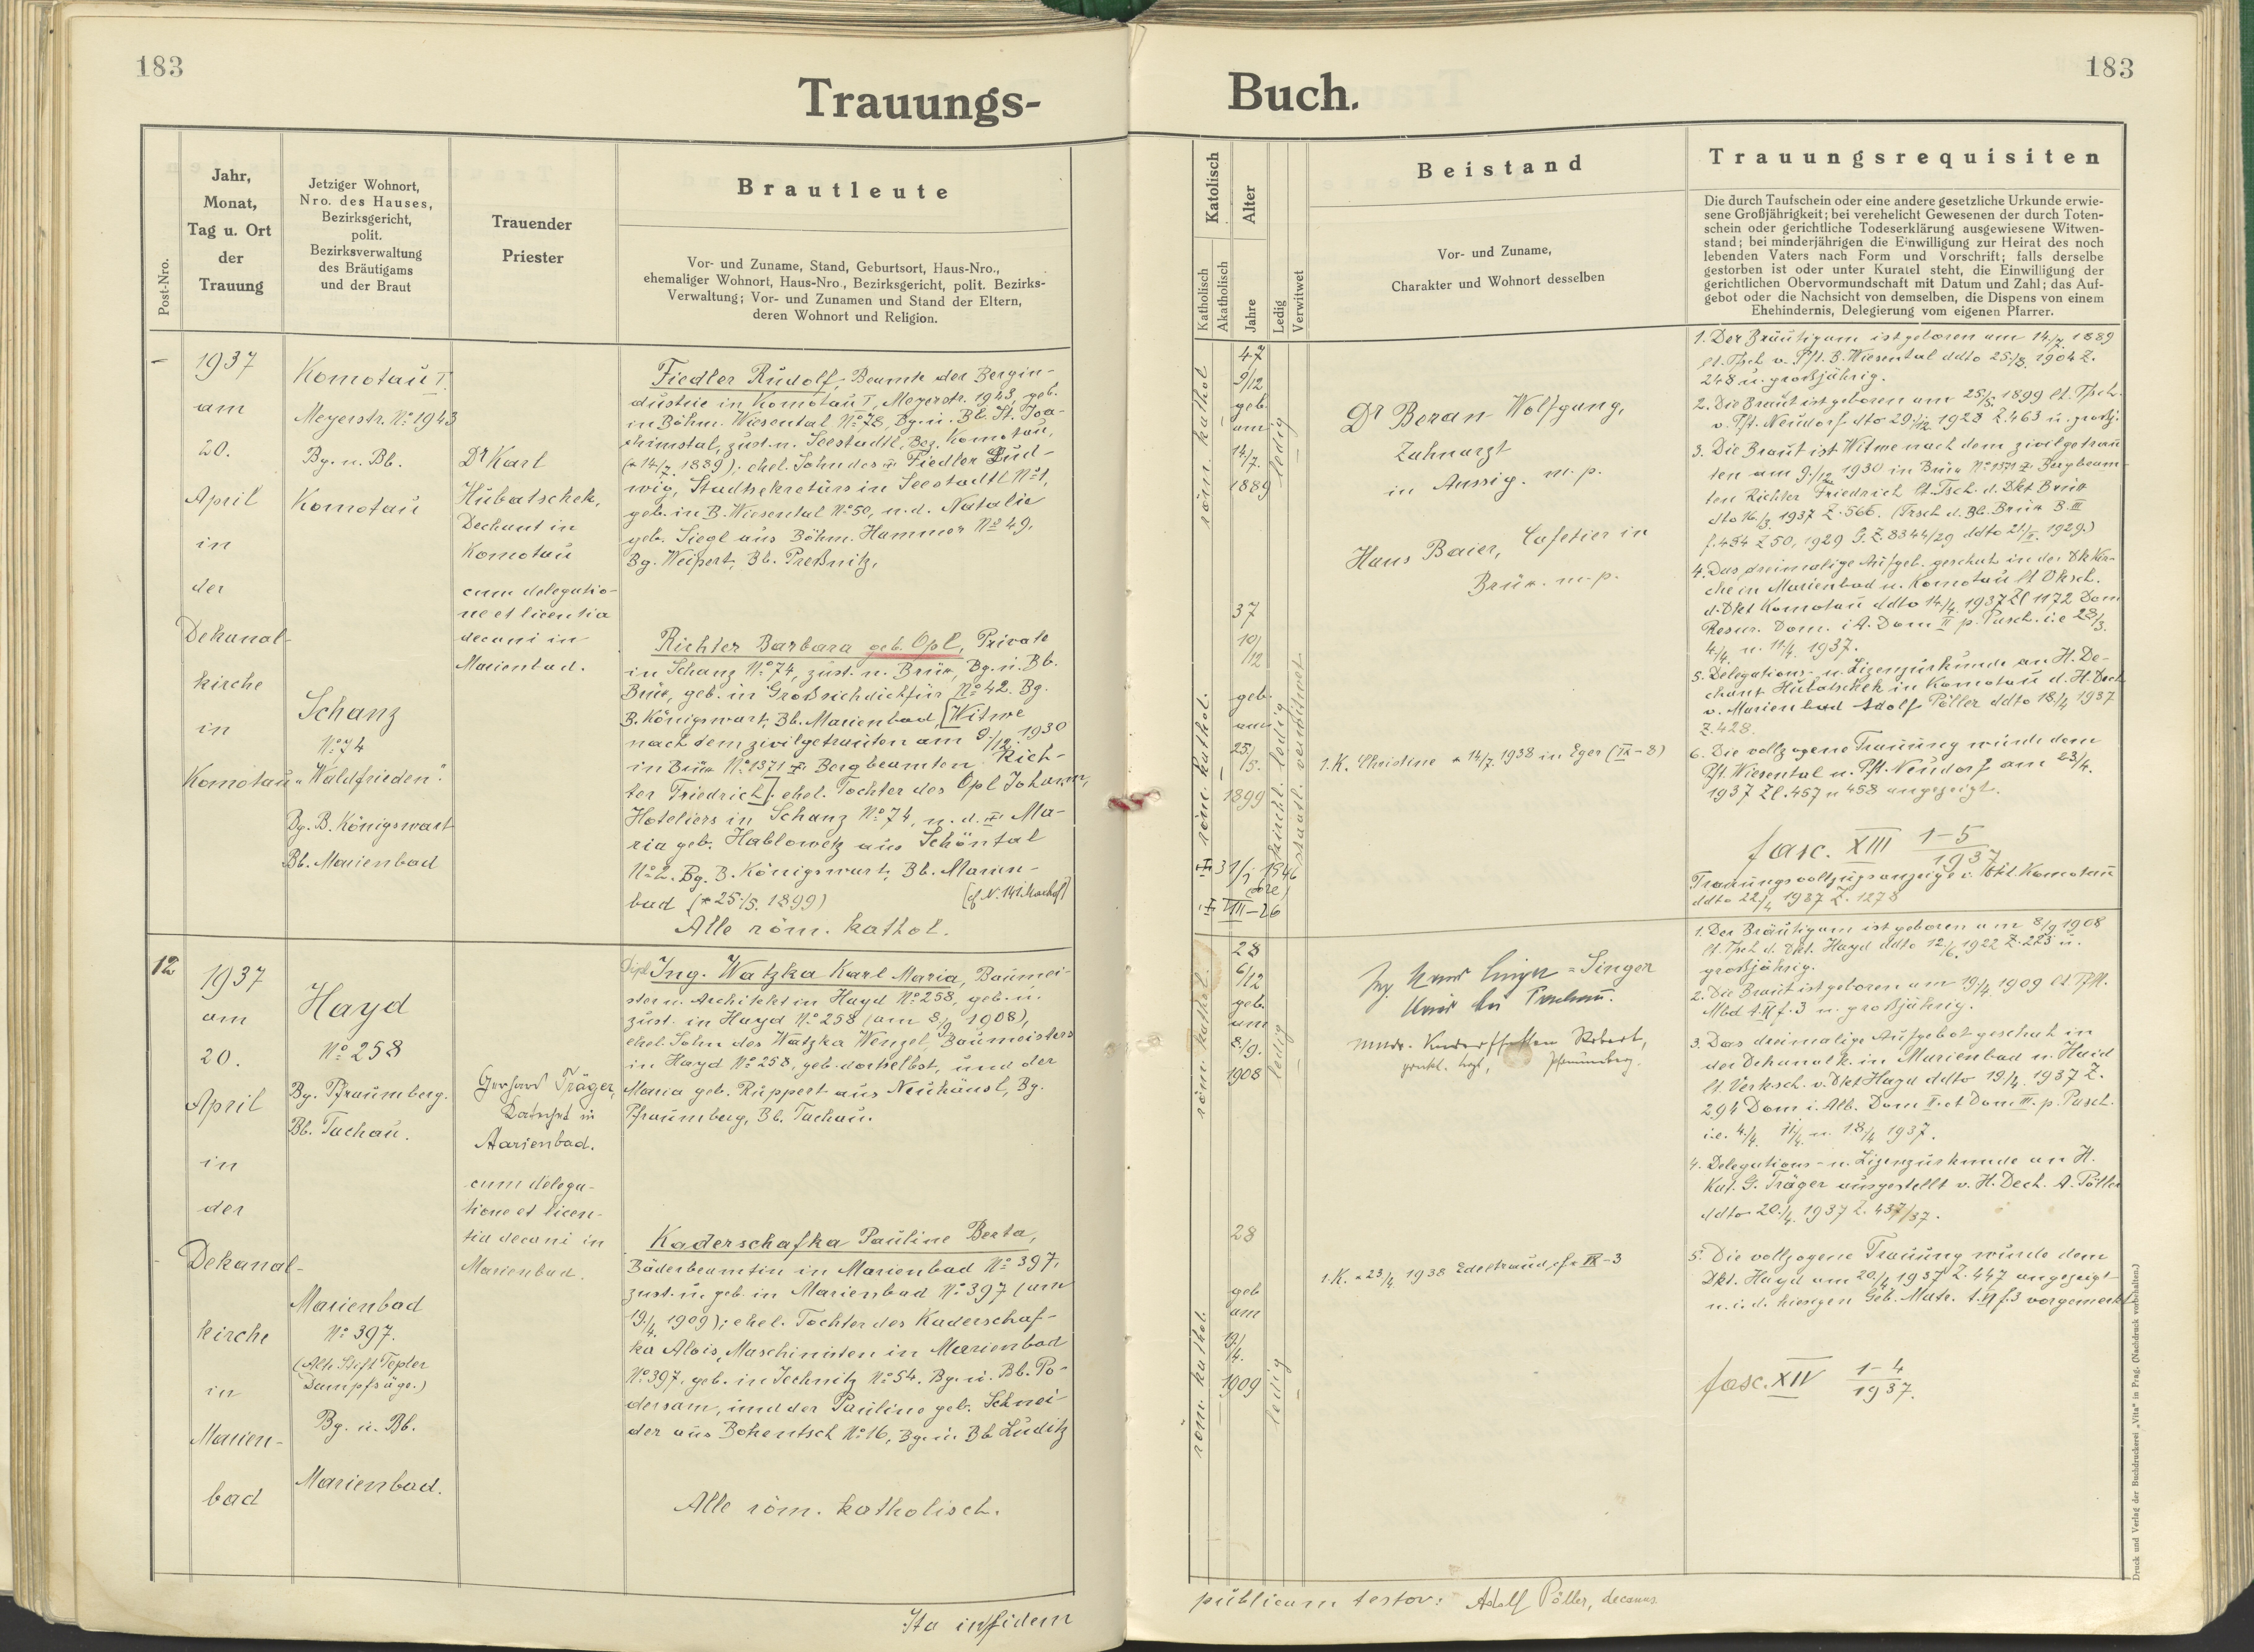 183
183
Trauungs-
Buch.
Post-Nro.
Jahr,
Monat,
Tag u. Ort
der
Trauung
Jetziger Wohnort,
Nro. des Hauses,
Bezirksgericht,
polit.
Bezirksverwaltung
des Bräutigams
und der Braut
Trauender
Priester
Brautleute
Vor- und Zuname, Stand, Geburtsort, Haus-Nro.,
ehemaliger Wohnort, Haus-Nro., Bezirksgericht, polit. Bezirks-
Verwaltung; Vor- und Zunamen und Stand der Eltern,
deren Wohnort und Religion.
Katolisch
Katholisch
Akatholisch
Alter
Jahre
Ledig
Verwitwet
Beistand
Vor- und Zuname,
Charakter und Wohnort desselben
Trauungsrequisiten
Die durch Taufschein oder eine andere gesetzliche Urkunde erwie-
sene Großjährigkeit; bei verehelicht Gewesenen der durch Toten-
schein oder gerichtliche Todeserklärung ausgewiesene Witwen-
stand; bei minderjährigen die Einwilligung zur Heirat des noch
lebenden Vaters nach Form und Vorschrift; falls derselbe
gestorben ist oder unter Kuratel steht, die Einwilligung der
gerichtlichen Obervormundschaft mit Datum und Zahl; das Auf-
gebot oder die Nachsicht von demselben, die Dispens von einem
Ehehindernis, Delegierung vom eigenen Pfarrer.
–
1937
am
20.
April
in
der
Dekanal-
kirche
in
Komotau
Komotau I.
Meyerstr. No. 1943
Bg. u. Bb.
Komotau
Schanz
No. 74
"Waldfrieden".
Bg. B. Königswart
Bb. Marienbad
Dr Karl
Hubatschek,
Dechant in
Komotau
cum delegatio-
ne et licentia
decani in
Marienbad.
Fiedler Rudolf, Beamte der Bergin-
dustrie in Komotau I, Meyerstr. 1943, geb.
in Böhm. Wiesental No. 78, Bg. u. Bb. St. Joa-
chimstal, zust. n. Seestadtl, Bez. Komotau,
(* 14./7. 1889); ehel. Sohn des Fiedler Lud-
wig, Stadtsekretärs in Seestadtl No. 1,
geb. in B. Wiesental No. 50, u. d. Natalie
geb. Siegl aus Böhm. Hammer No. 49,
Bg. Weipert, Bb. Preßnitz.
Richter Barbara geb. Opl, Private
in Schanz No. 74, zust. n. Brüx, Bg. u. Bb.
Brüx, geb. in Großsichdichfür No. 42. Bg.
B. Königswart, Bb. Marienbad, [Witwe
nach dem zivilgetrauten am 9./12. 1930
in Brüx No. 1371 Bergbeamten Rich-
ter Friedrich]. ehel. Tochter des Opl Johann,
Hoteliers in Schanz No. 74, u. d. Ma-
ria geb. Hablowetz aus Schöntal
No. 2. Bg. B. Königswart, Bb. Marien-
bad (* 25./5. 1899)
Alle röm. kathol.
röm. kathol
47
9/12
geb.
am
14./7.
1889
ledig
röm. kathol.
37
10/
/12
geb.
am
25./
/5.
1899
kirchl. ledig
staatl. verwitwet
VIII-26
Dr Beran Wolfgang,
Zahnarzt
in Aussig. m. p.
Hans Baier, Cafetier in
Brüx. m. p.
1. K. Christine * 14/7. 1938 in Eger (IX-8)
1. Der Bräutigam ist geboren am 14./7. 1889
lt. Tsch. v. Pft. B. Wiesental ddto 25./8. 1904 Z.
248 u. großjährig.
2. Die Braut ist geboren am 25./5. 1899 lt. Tsch.
v. Pft. Neudorf dto 29./12. 1928 Z. 463 u. großj.
3. Die Braut ist Witwe nach dem zivilgetrau
ten am 9./12. 1930 in Brüx No. 1371 Bergbeam-
ten Richter Friedrich lt. Tsch. d. Dkt Brüx
dto 16./3. 1937 Z. 566.
4. Das dreimalige Aufgeb. geschah in der Dk Kir-
che in Marienbad u. Komotau lt
d. Dkt Komotau ddto 14./4. 1937 Zl 1172 Dom
Resur. Dom. i A. Dom II p. Pasch. i. e 28/3.
4./4. u. 11./4. 1937.
5. Delegations- u. Lizenzurkunde an H. De-
chant Hubatschek in Komotau d. H. Dech
v. Marienbad Adolf Pöller ddto 18./4 1937
Z. 428.
6. Die vollzogene Trauung wurde dem
Pft. Wiesental u. Pft. Neudorf am 23/4.
1937 Zl. 457 u 458 angezeigt.
fasc. XIII 1-5
1937
Trauungsvollzugsanzeige v. Dkt. Komotau
ddto 22./4 1937 Z. 1278
12
1937
am
20.
April
in
der
Dekanal-
kirche
in
Marien-
bad
Hayd
No. 258
Bg. Pfraumberg.
Bb. Tachau.
Marienbad
No. 397.
(Alte Stift Tepler
Dampfsäge.)
Bg. u. Bb.
Marienbad.
Gerhard Träger,
Katechet in
Marienbad.
cum delega-
tione et licen-
tia decani in
Marienbad.
Dipl. Ing. Watzka Karl Maria, Baumei-
ster u. Architekt in Hayd No. 258, geb. u.
zust. in Hayd No. 258 (am 8./9. 1908),
ehel. Sohn des Watzka Wenzel, Baumeisters
in Hayd No. 258, geb. dortselbst, und der
Maria geb. Ruppert aus Neuhäusl, Bg.
Pfraumberg, Bb. Tachau.
Kaderschafka Pauline Berta,
Bäderbeamtin in Marienbad No. 397,
zust. u. geb. in Marienbad No. 397 (am
19./4. 1909); ehel. Tochter des Kaderschaf-
ka Alois, Maschinisten in Marienbad
No. 397, geb. in Jechnitz No. 54. Bg. u. Bb. Po-
dersam, und der Pauline geb. Schnei-
der aus Bohentsch No. 16, Bg. u. Bb Luditz
Alle röm. katholisch.
röm. kathol.
28
6/12
geb.
am
8./9.
1908
ledig
röm. kathol.
28
geb
am
19/
/4.
1909
ledig
Ing.
= Singer
Robert,
Pfraumberg.
1. K. * 23/4 1938 Edeltraud, cf. IX-3
1. Der Bräutigam ist geboren am 8./9 1908
lt. Tsch d. Dkt. Hayd ddto 12./6. 1922 Z. 223 u.
großjährig.
2. Die Braut ist geboren am 19./4. 1909 lt
Mbd t. VI f. 3 u. großjährig.
3. Das dreimalige Aufgebot geschah in
der Dekanalk. in Marienbad u. Haid
lt. Verksch. v. Dkt Hayd ddto 19./4. 1937 Z.
294 Dom i. Alb. Dom II. et Dom III. p. Pasch.
i. e. 4./4. 11./4. u. 18./4. 1937.
4. Delegations- u. Lizenzurkunde an H.
Kat. G. Träger ausgestellt v. H. Dech. A. Pöller
ddto 20./4. 1937 Z. 437/37.
5. Die vollzogene Trauung wurde dem
Dkt. Hayd am 20./4. 1937 Z. 447 angezeigt
u. i. d. hiesigen Geb. Matr. t. VI f. 3 vorgemerkt
fasc. XIV 1-4
1937.
Ita in fidem
publicam testor: Adolf Pöller, decanus.
Druck und Verlag der Buchdruckerei „Vita" in Prag. (Nachdruck vorbehalten.)